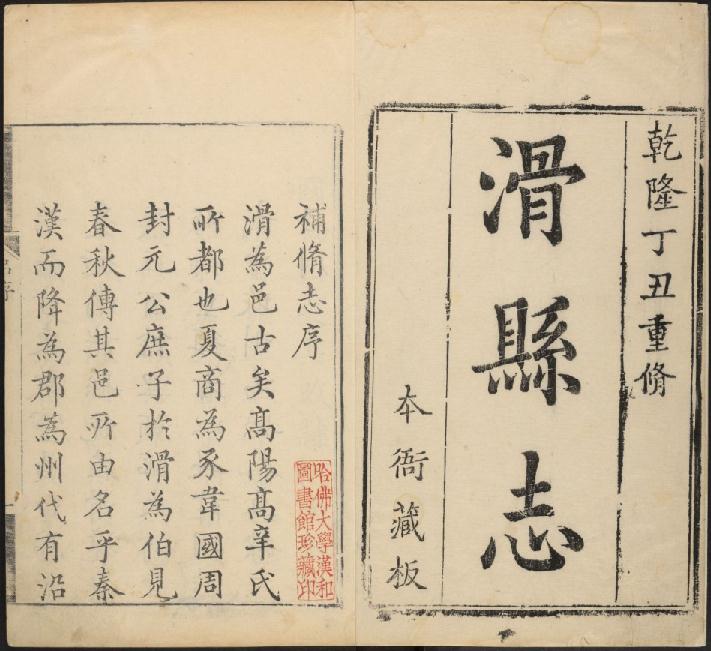 乾隆丁丑重脩
滑縣志
本衙藏板
補脩志序
滑為邑古矣髙陽髙辛氏
所都也夏商為豕韋國周
封元公庶子於滑為伯見
春秋傳其邑所由名乎秦
漢而降為郡為州代有沿
哈佛大學漢和
圖書館珍藏印
序
一